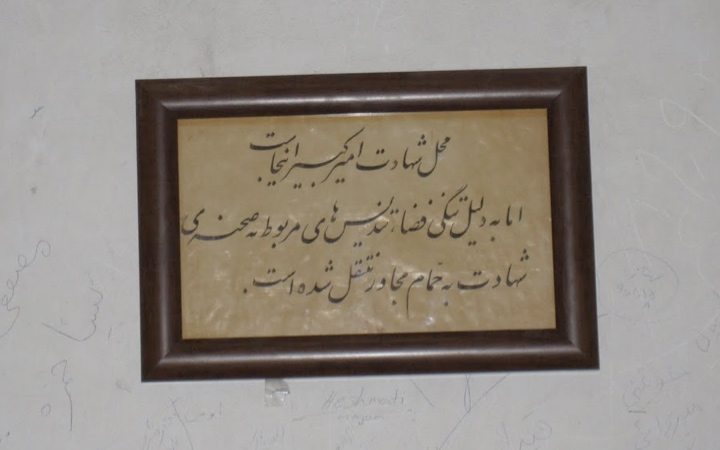 محل شهادت امیرکبیر اینجاست
اما به دلیل تنگی فضا، تندیس‌های مربوط به صحنه‌ی
شهادت به حمّام مجاور منتقل شده است.
Hashmadi